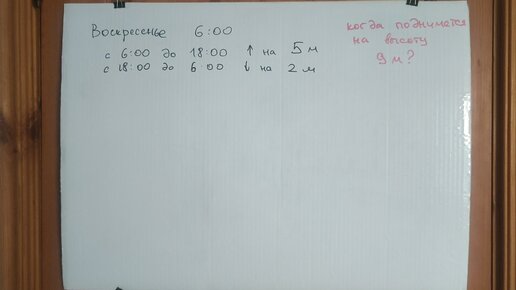 Воскресенье 6:00
с 6:00 до 18:00 ↑ на 5 м
с 18:00 до 6:00 ↓ на 2 м
когда поднимется
на высоту
9 м?